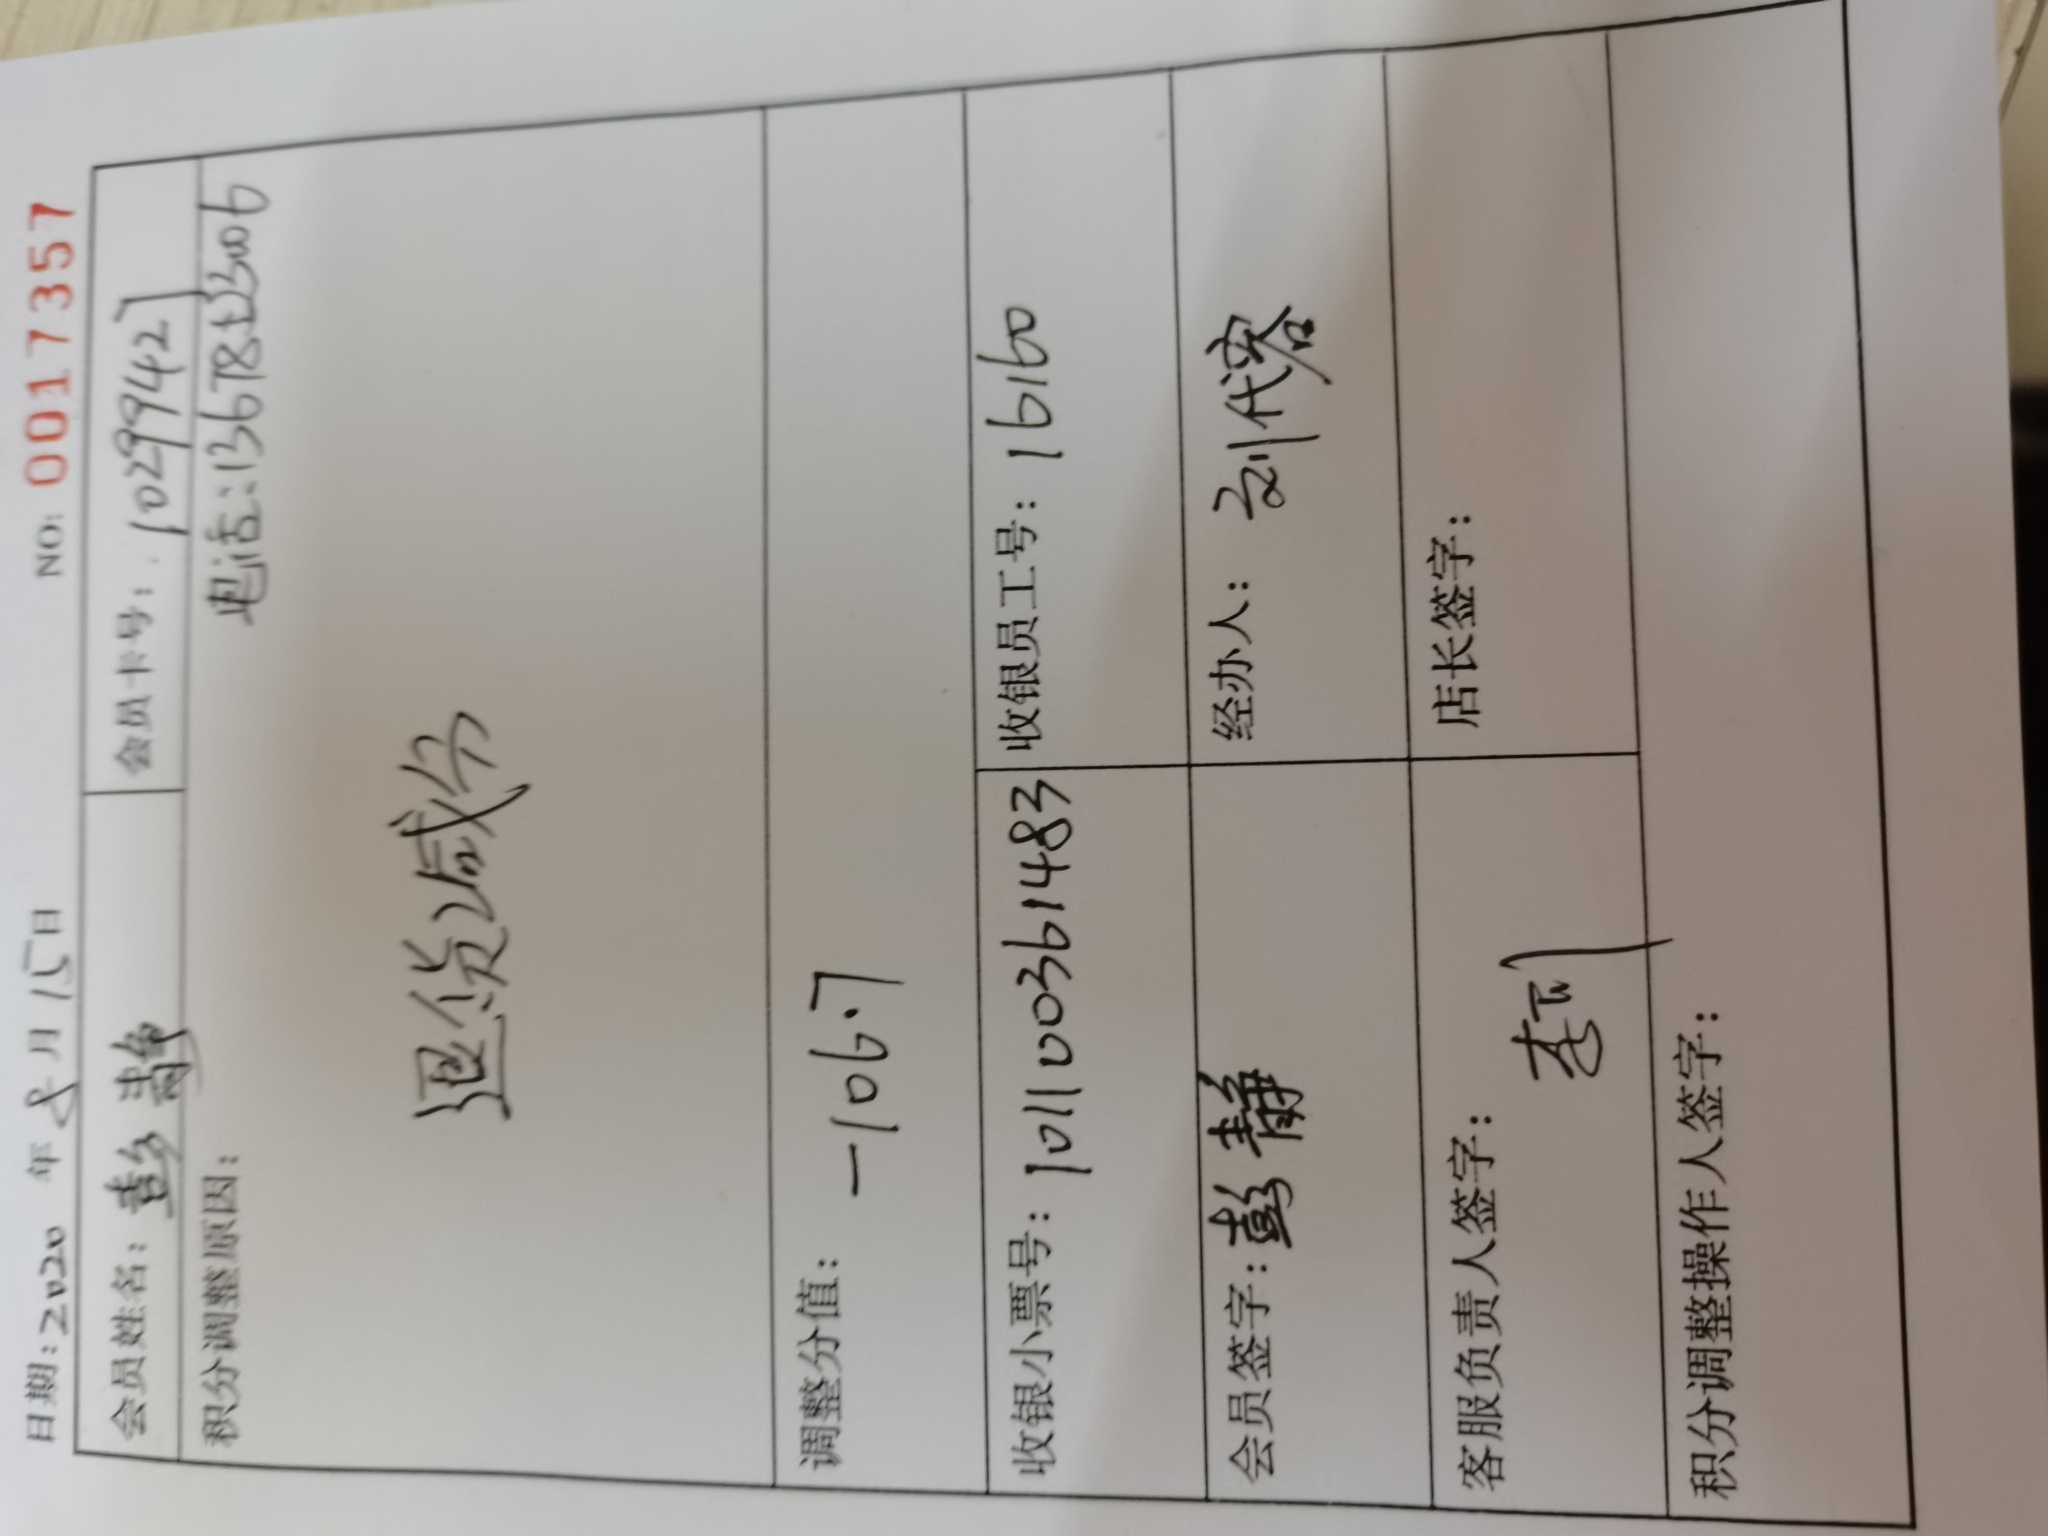 NO: 0017357
日期:2020 年 8 月 15 日
会员姓名: 彭静 会员卡号: 10299427
积分调整原因: 电话:
退货减分
调整分值: -106.7
收银小票号: 101100361483 收银员工号: 16160
会员签字: 彭静 经办人: 刘代容
客服负责人签字: 店长签字:
积分调整操作人签字: